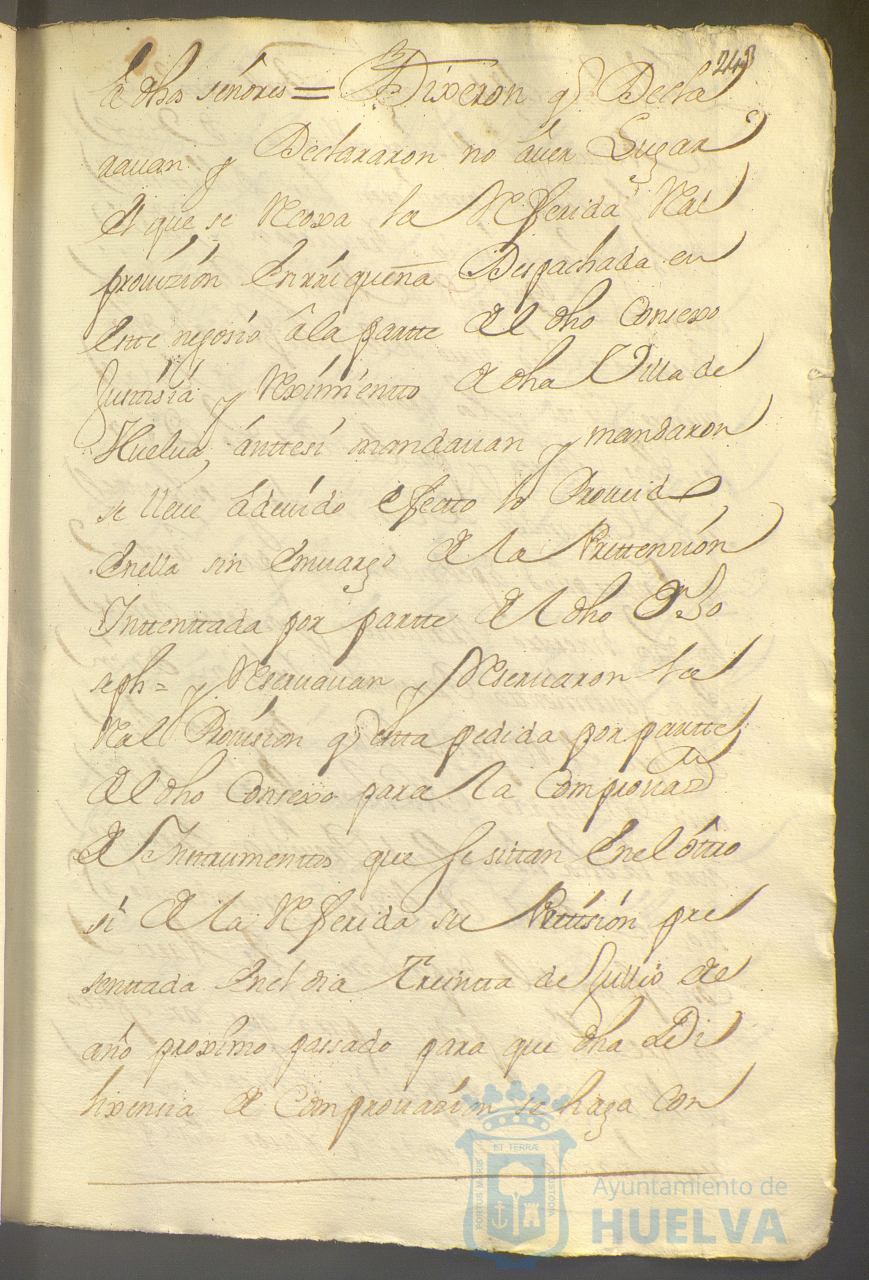 243
de dhos señores = Dixeron q Decla
rauan y Declararon no áuer Lugar
el que se Recoxa la Referida Rel
prouizión Enrriqueña Despachada en
Este negosio â la partte del dho Consexo
Justisiá y Reximientto de dha Villa de
Huelua, ánttesi mandauan y mandaron
se lleue â deuído efecto lo Proueido
Enella sin Emuargo de la Prettenzión
Inttenttada por partte del dho Dn Jo
seph = y Reseruauan y Reseruaron la
Ral Prouision q esta pedida por partte
del dho Consexo para la Comprouazn
de Instrumenttos que se sittan Enel ôtro
si de la Referida su Pettisión pre
senttada Enel dia Treintta de Jullio de
año proximo passado para que dha Di
lixensia de Comprouasión se haga Con
ET TERRÆ
PORTUS MARIS
CUSTODIA
Ayuntamiento de
HUELVA